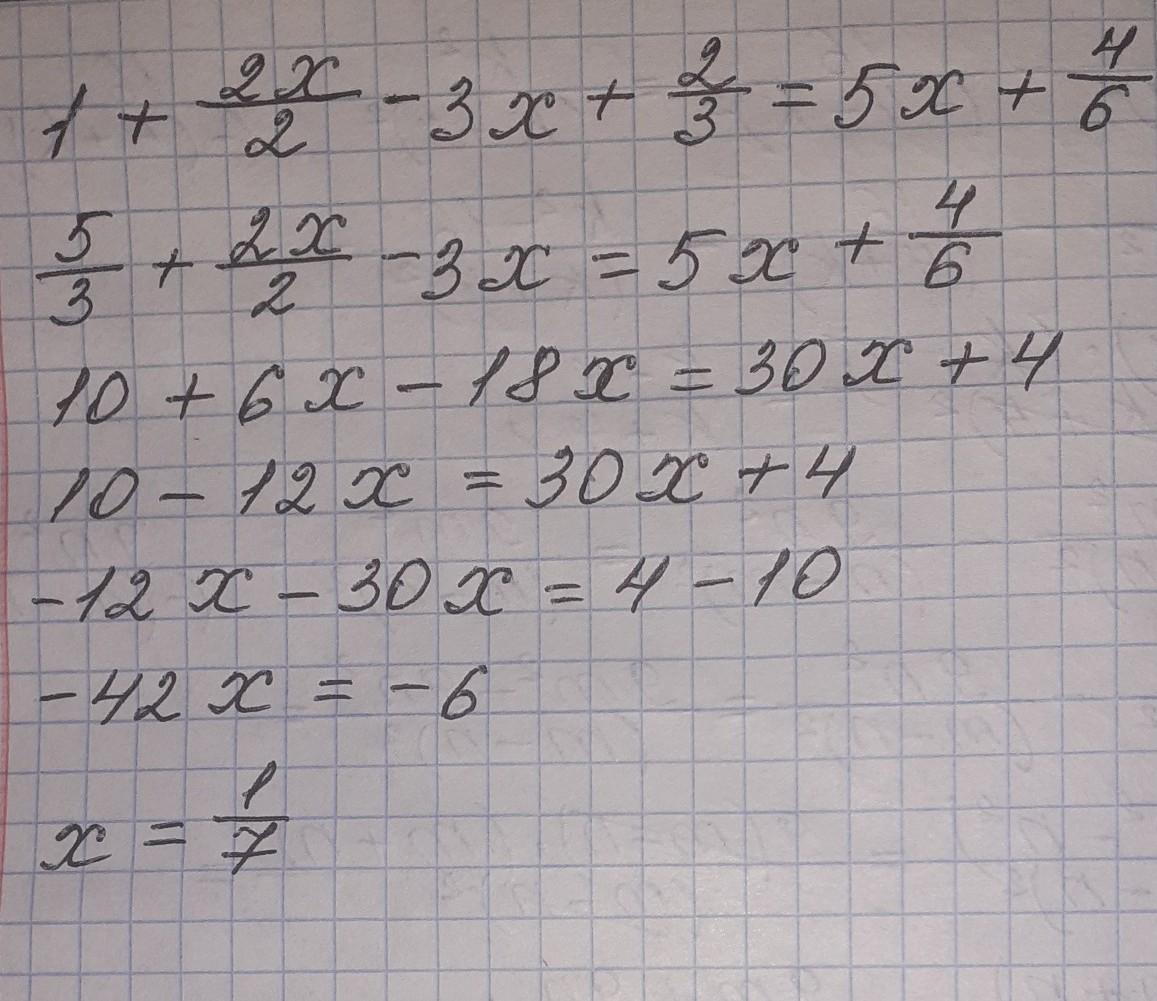 1 + 2x/2 - 3x + 2/3 = 5x + 4/6
5/3 + 2x/2 - 3x = 5x + 4/6
10 + 6x - 18x = 30x + 4
10 - 12x = 30x + 4
-12x - 30x = 4 - 10
-42x = -6
x = 1/7